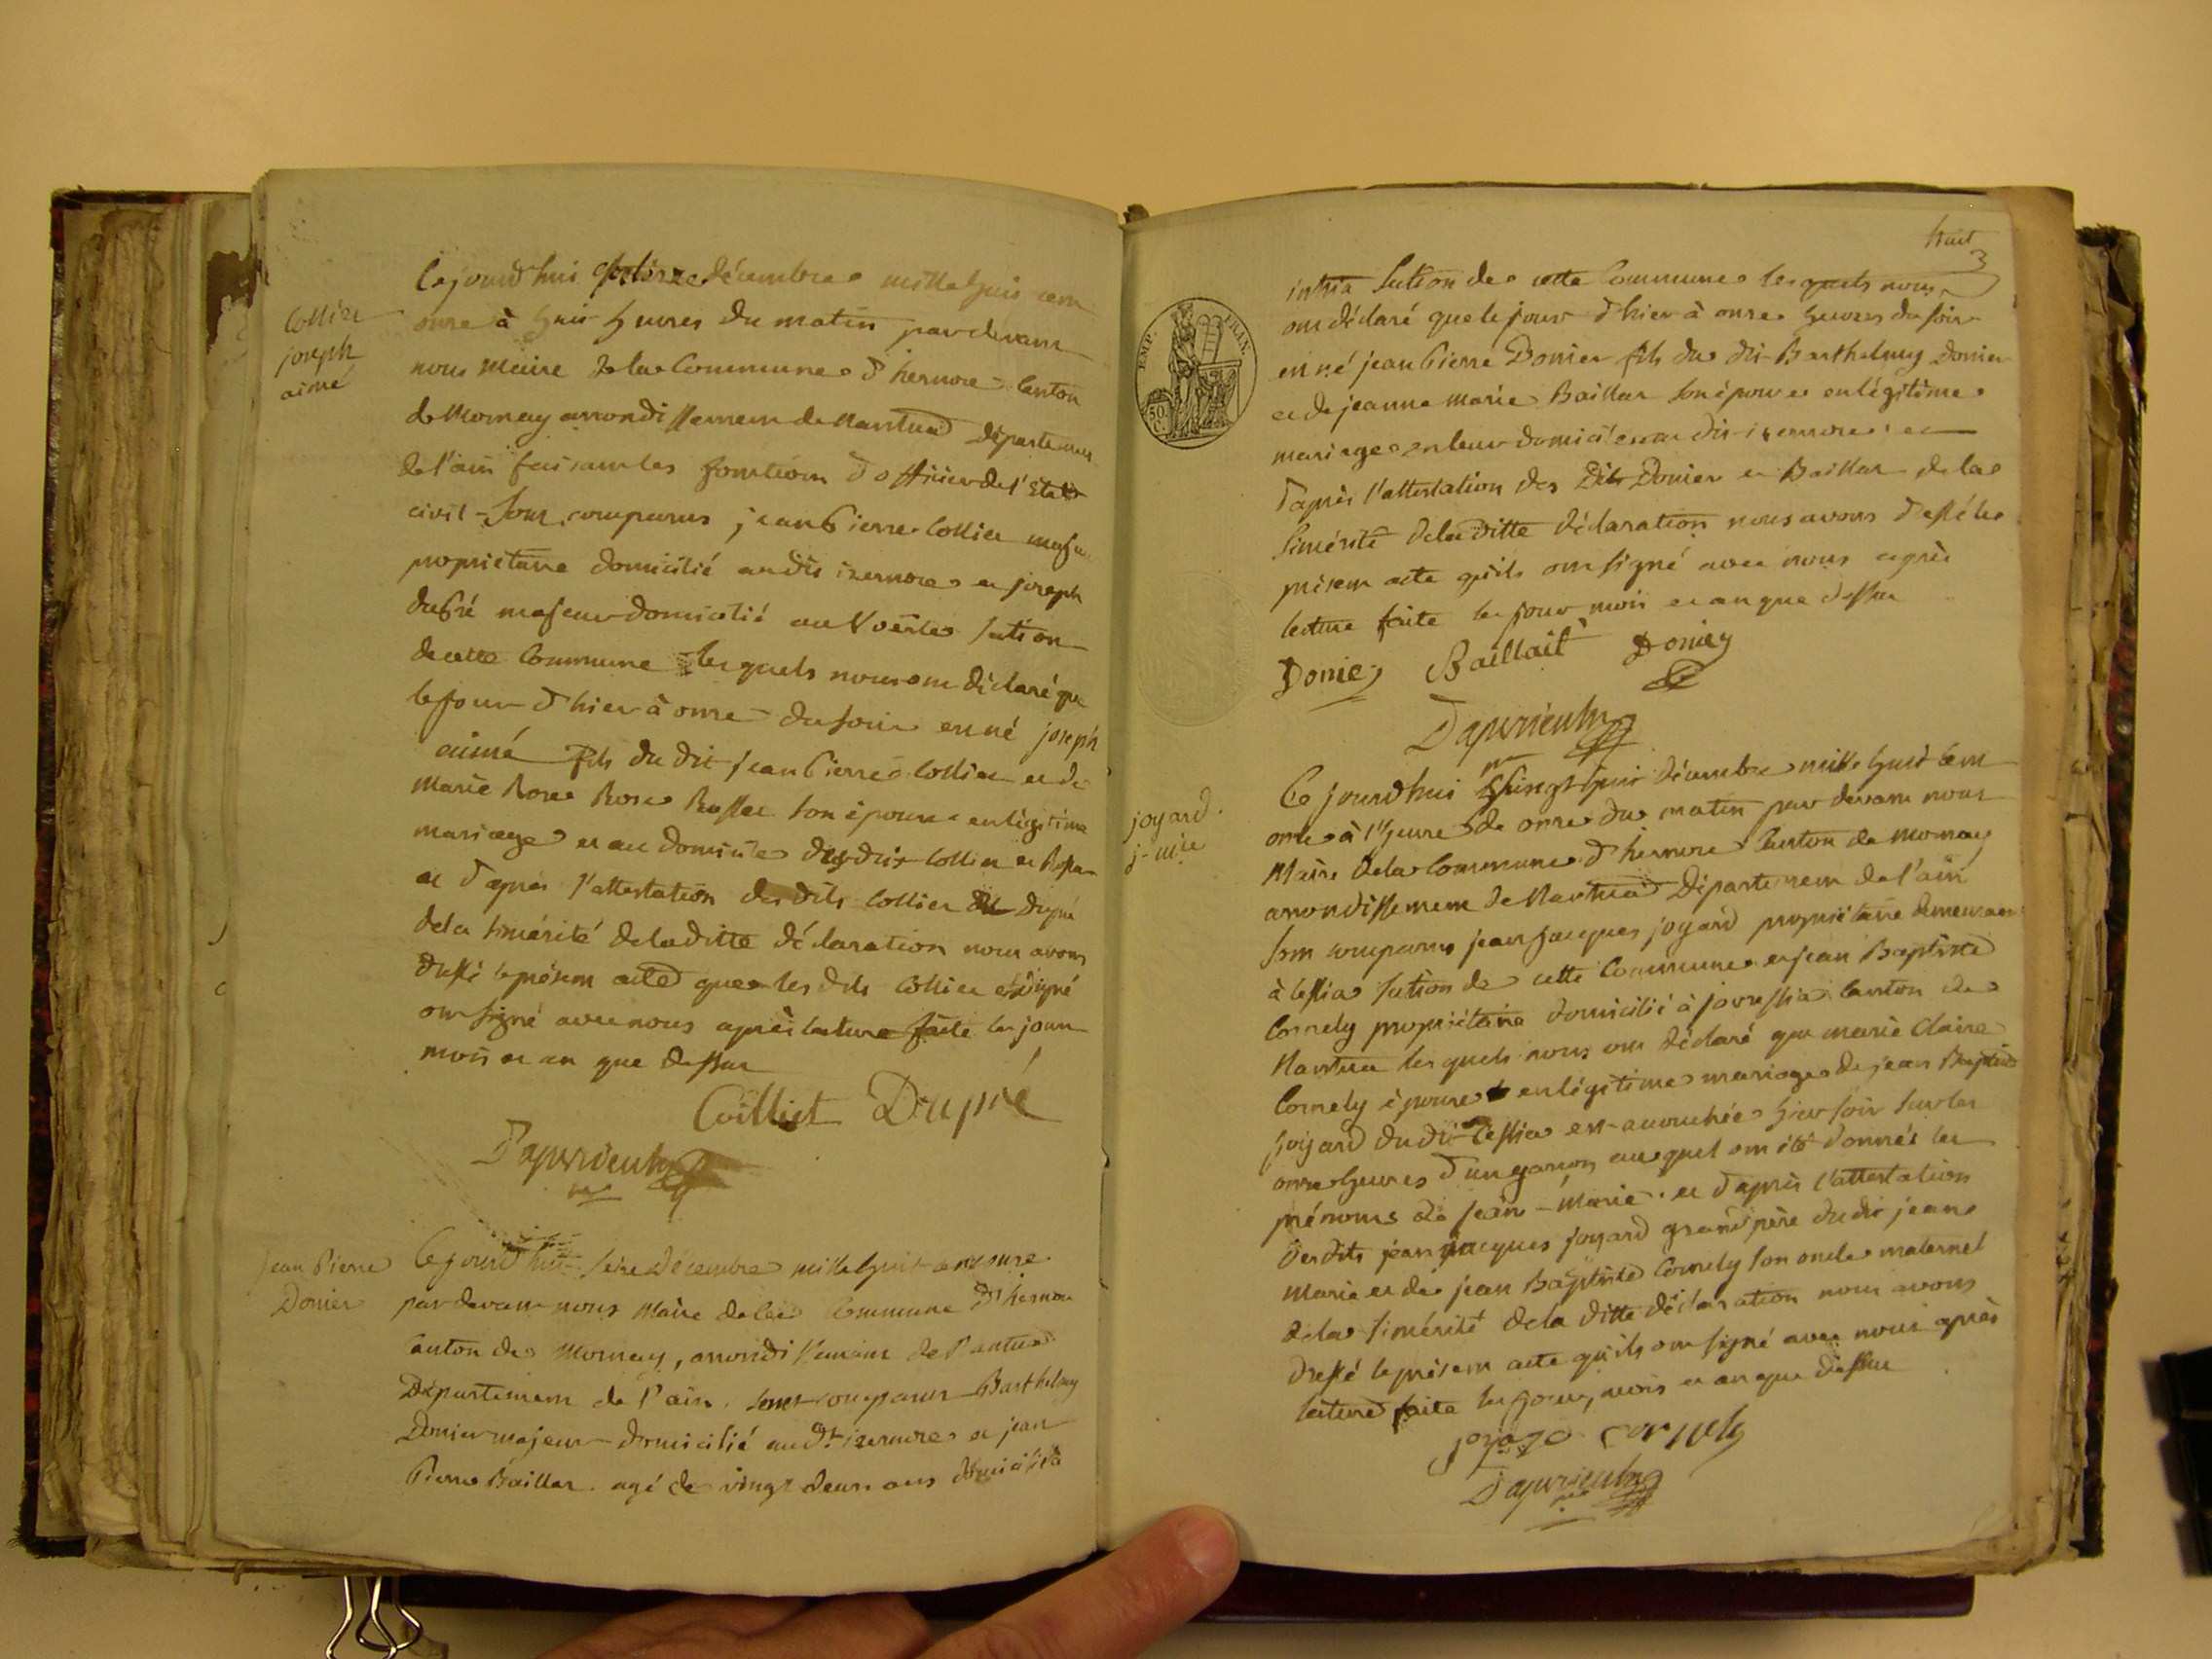 Collier
joseph
aimé
Cejourd'hui décembre mille huis cent
onze à huit heures du matin pardevant
nous Maire de la Commune d'hernore Canton
de Mornay arrondissement de Nantua Département
de l'ain faisant les fonctions d'officier de l'Etat
civil - Sont comparus jean Pierre Collier
propriétaire domicilié au dit izernore et joseph
dupré majeur domicilié au Voërle Section
de cette Commune lesquels nous ont déclaré que
le jour d'hier à onze du soir est né joseph
aimé fils du dit jean Pierre Collier et de
Marie Rose Rose son épouse en légitime
mariage et au domicile Collier et
et d'après l'attestation des dits Collier dupré
de la sincérité de la ditte déclaration nous avons
dressé le présent acte que les dits Collier et dupré
ont signé avec nous après lecture faite les jour
mois et an que dessus
Colliet Dupré
Jean Pierre
Donier
Cejourd'hui seize Décembre mille huit cent onze
par devant nous Maire de la Commune d'hernore
Canton de Mornay, arrondissement de Nantua
Département de l'ain. sont comparus Barthelmy
Donier majeur domicilié aud.t izernore et jean
Pierre Baillar agé de vingt deux ans domicilié à
huit
3
EMP. FRAN.
50 C.
Section de cette Commune lesquels nous
ont déclaré que le jour d'hier à onze heures du soir
est né jean Pierre Donier fils du dit Barthelmy Donier
et de jeanne Marie Baillar son épouse en légitime
mariage en leur domicile au dit izernore et
d'après l'attestation des Dits Donier et Baillar de la
sincérité de la ditte déclaration nous avons dressé le
présent acte qu'ils ont signé avec nous après
lecture faite les jour mois et an que dessus
Donier Baillait Donier
joyard
j-m.ie
Ce jourd'hui vingt huit décembre mille huit cent
onze à l'heure de onze du matin par devant nous
Maire de la Commune d'hernore Canton de Mornay
arrondissement de Nantua Département de l'ain
sont comparus jean jacques joyard propriétaire demeurant
à Cessia section de cette Commune et jean Baptiste
Cornely propriétaire domicilié à canton de
Nantua lesquels nous ont déclaré que marie Claire
Cornely épouse en légitime mariage de jean Baptiste
joyard dudit Cessia est accouchée hier soir sur les
onze heures d'un garçon auquel ont été donnés les
prénoms de jean-marie. et d'après l'attestation
desdits jean jacques joyard grand père dudit jean
marie et de jean Baptiste Cornely son oncle maternel
de la sincérité de la ditte déclaration nous avons
dressé le présent acte qu'ils ont signé avec nous après
lecture faite les jour, mois et an que dessus
joyard cornely